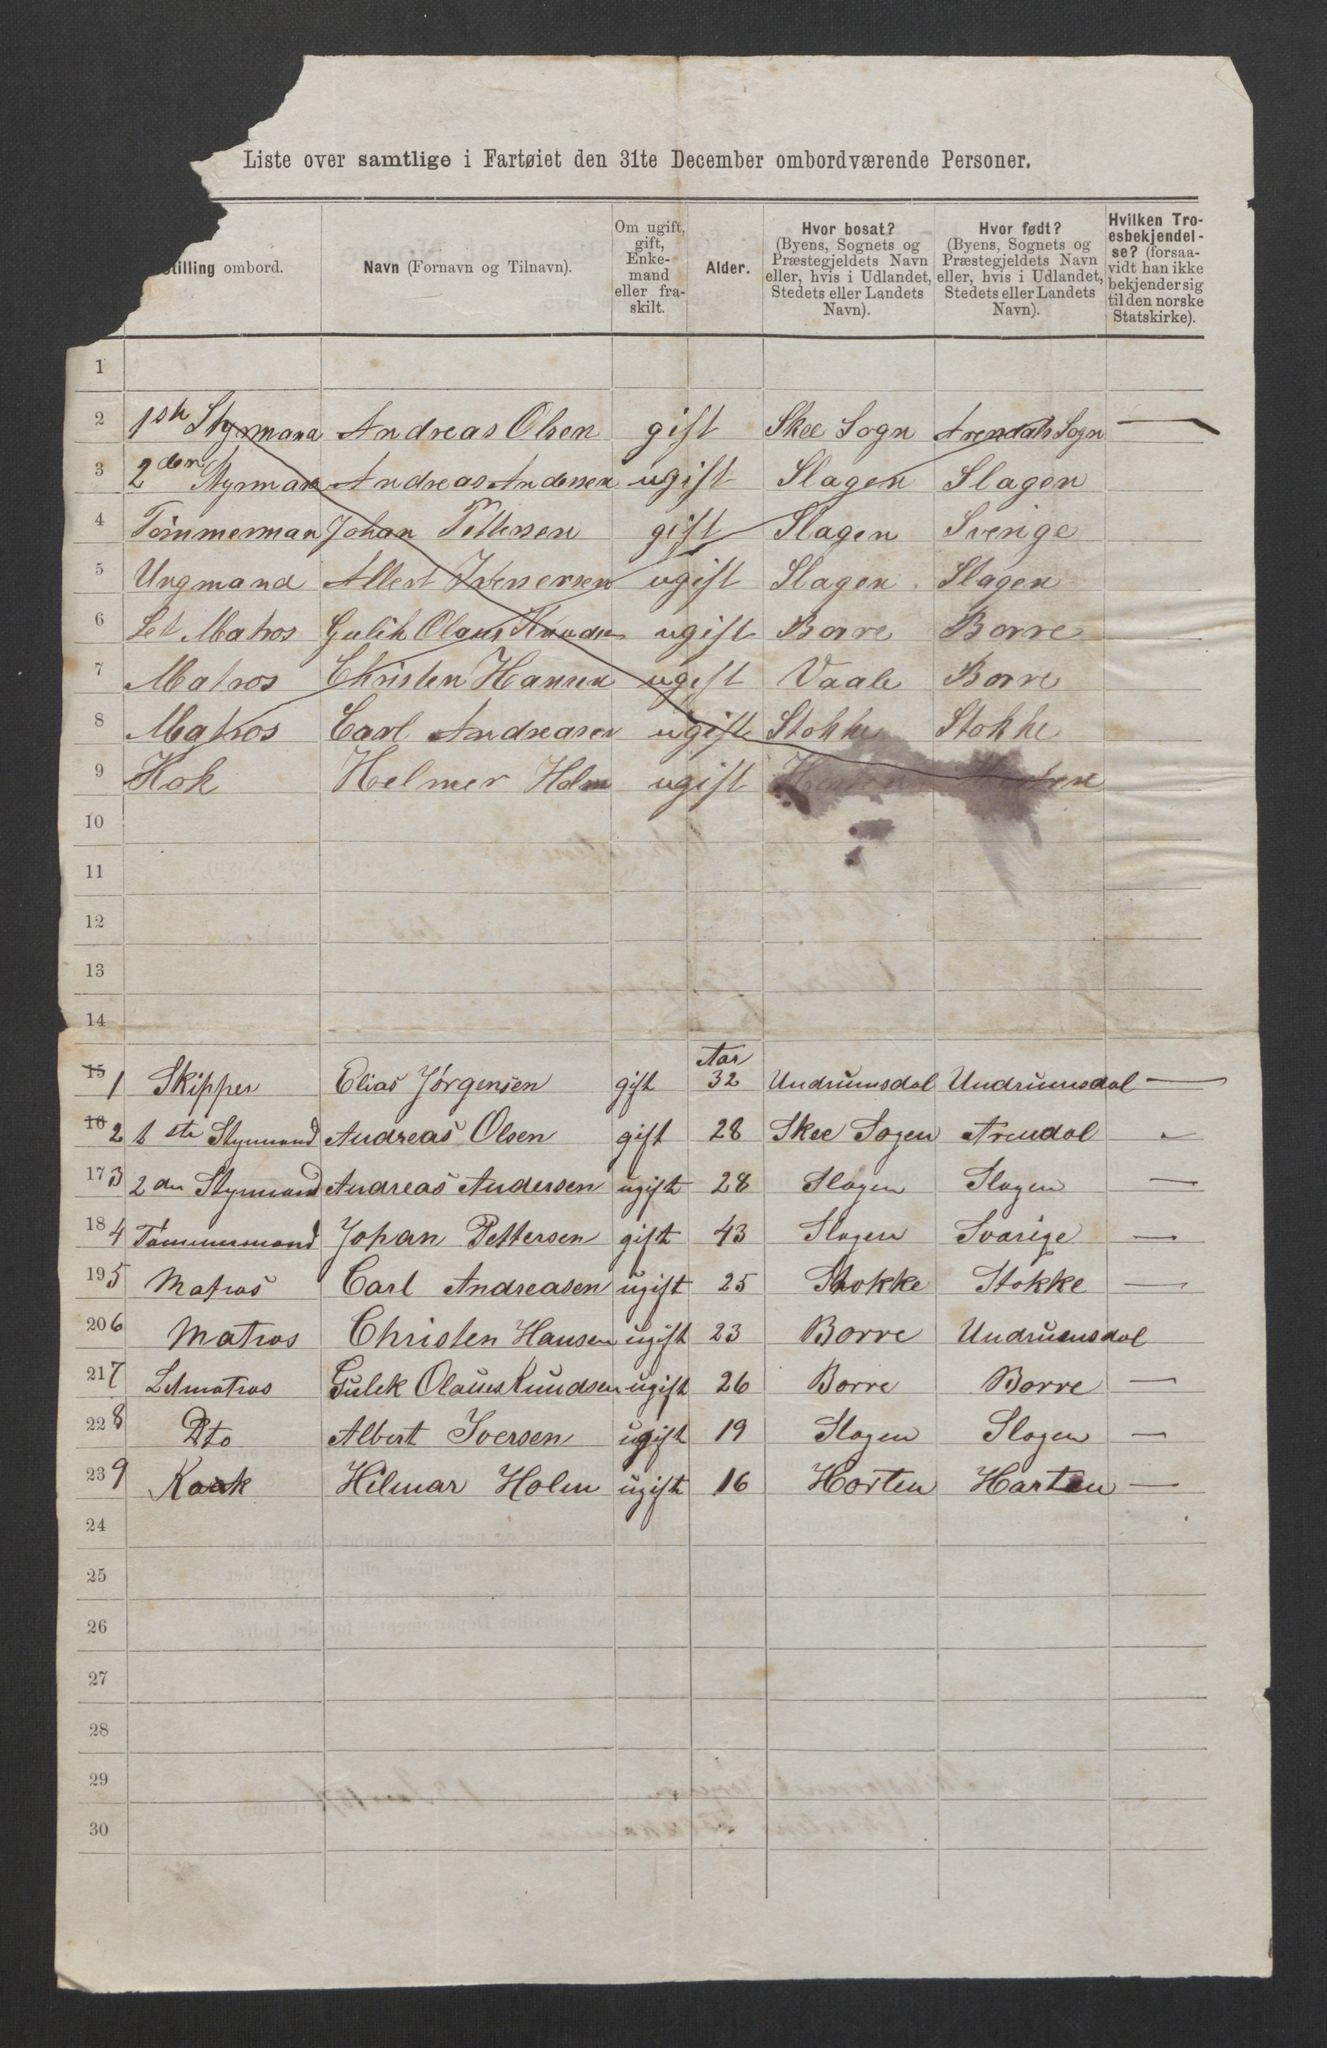 Liste over samtlige i Fartøiet den 31te December ombordværende Personer.
tilling ombord. Navn (Fornavn og Tilnavn). Om ugift, gift, Enkemand eller fraskilt. Alder. Hvor bosat? (Byens, Sognets og Præstegjeldets Navn eller, hvis i Udlandet, Stedets eller Landets Navn). Hvor født? (Byens, Sognets og Præstegjeldets Navn eller, hvis i Udlandet, Stedets eller Landets Navn). Hvilken Troesbekjendelse? (forsaavidt han ikke bekjender sig til den norske Statskirke).
1
2 1ste Styrmand Andreas Olsen gift Skee Sogn Arendals Sogn —
3 2den Styrman Andreas Andersen ugift Slagen Slagen
4 Tömmerman Johan Pettersen gift Slagen Sverige
5 Ungmand Albert Iversen ugift Slagen Slagen
6 Let Matros Gulik Olaus Knudsen ugift Borre Borre
7 Matros Christen Hansen ugift Vaale Borre
8 Matros Carl Andreasen ugift Stokke Stokke
9 Kok Helmer Holm ugift Horten Horten
10
11
12
13
14
Aar
15 1 Skipper Elias Jørgensen gift 32 Undrumsdal Undrumsdal —
16 2 1ste Styrmand Andreas Olsen gift 28 Skee Sogen Arendal —
17 3 2den Styrmand Andreas Andersen ugift 28 Slagen Slagen —
18 4 Tömmermand Johan Pettersen gift 43 Slagen Svarige —
19 5 Matros Carl Andreasen ugift 25 Stokke Stokke —
20 6 Matros Christen Hansen ugift 23 Borre Undrumsdal
21 7 Letmatros Gulek Olaus Knudsen ugift 26 Borre Borre —
22 8 Dto Albert Iversen ugift 19 Slagen Slagen —
23 9 Kok Hilmar Holm ugift 16 Horten Horten —
24
25
26
27
28
29
30